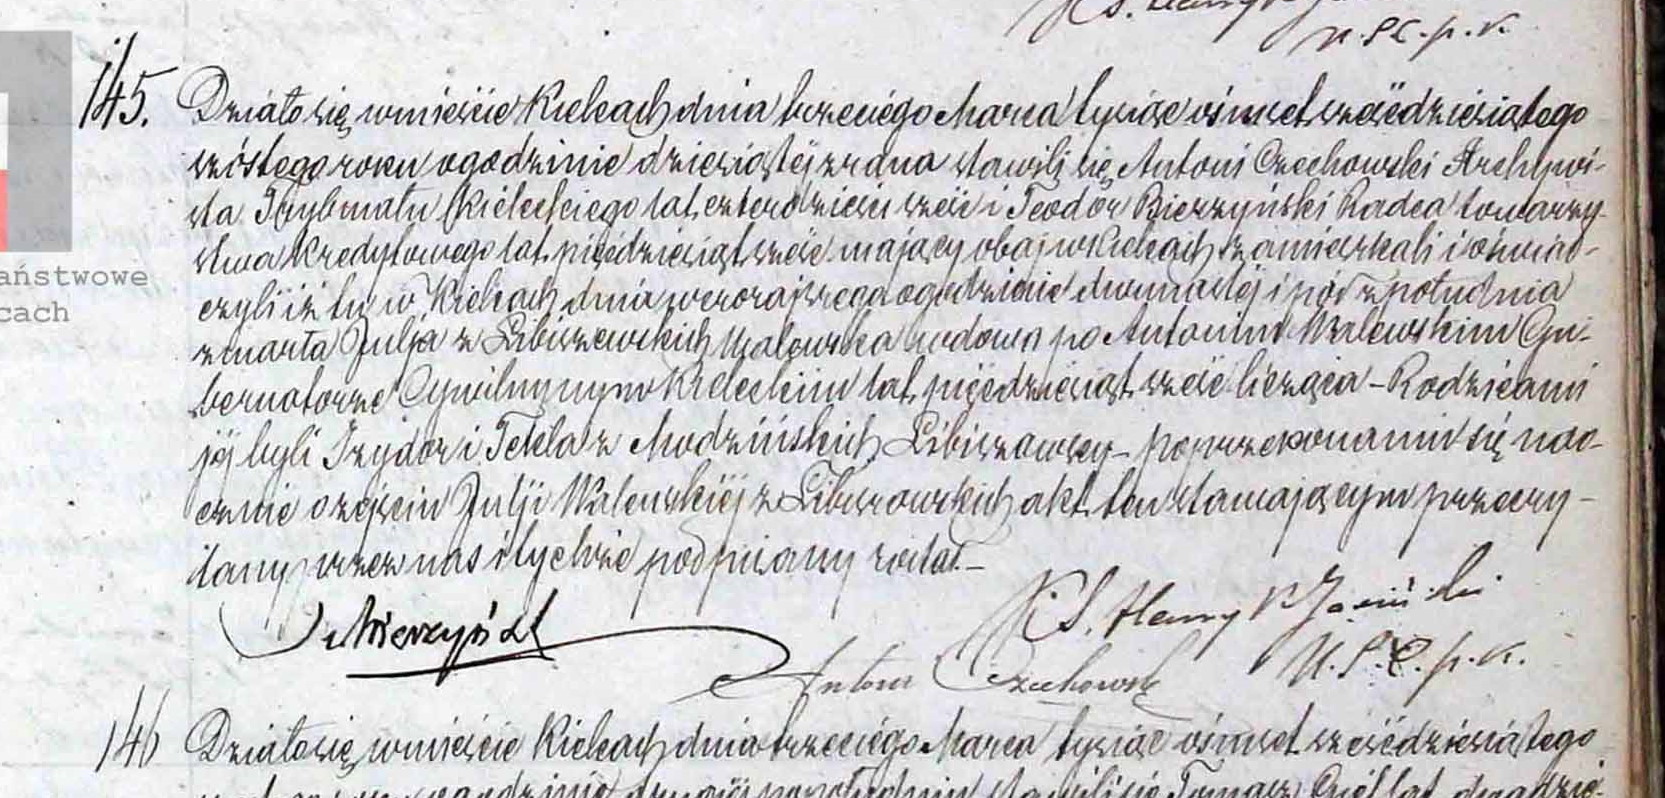 U.S.C.p.K.
145. Działo się w mieście Kielcach dnia trzeciego Marca tysiąc ośmset sześćdziesiątego
szóstego roku o godzinie dziesiątéj z rana stawili się Antoni Czechowski Archywi-
sta Trybunału Kieleckiego lat czterdzieści sześć i Teodor Bierzyński Radca towarzy-
stwa Kredytowego lat pięćdziesiąt sześć mający obaj w Kielcach zamieszkali i oświad-
czyli iż tu w Kielcach dnia wczorajszego o godzinie dwunastéj i pół z południa
zmarła Julja z Libiszewskich Walewska wdowa po Antonim Walewskim Gu-
bernatorze Cywilnym w Kieleckim lat pięćdziesiąt sześć licząca – Rodzicami
jéj byli Izydor i Tekla z Modzińskich Libiszowscy – po przekonaniu się nao-
cznie o zejściu Julji Walewskiéj z Libiszowskich akt ten stawającym przeczy-
tany przez nas i tychże podpisany został. –
aństwowe
cach
Bierzyński
X. S.
Antoni Czechowski
U.S.C.p.K.
146 Działo się w mieście Kielcach dnia trzeciego Marca tysiąc ośmset sześćdziesiątego
o godzinie stawili się Tomasz lat